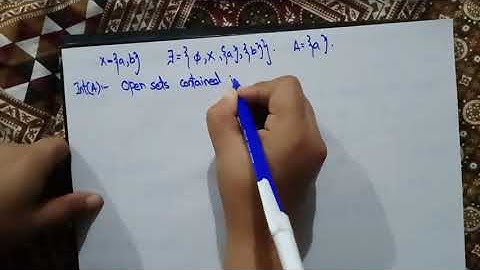 X={a,b} ℑ={ϕ,X,{a},{b}}. A={a}.
Int(A):- Open sets contained i